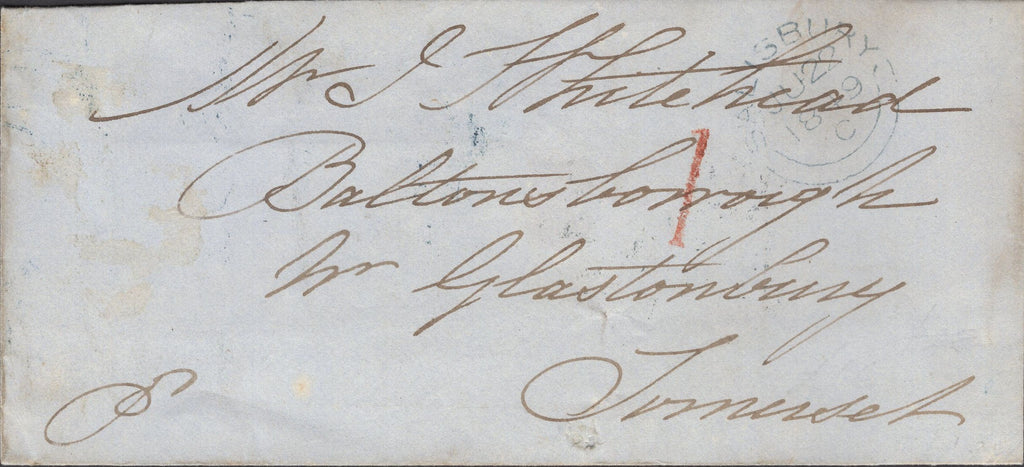 Mr J Whitehead
SALISBURY
JU 29
1849
C
Baltonsborough
1
Nr Glastonbury
Somerset
P